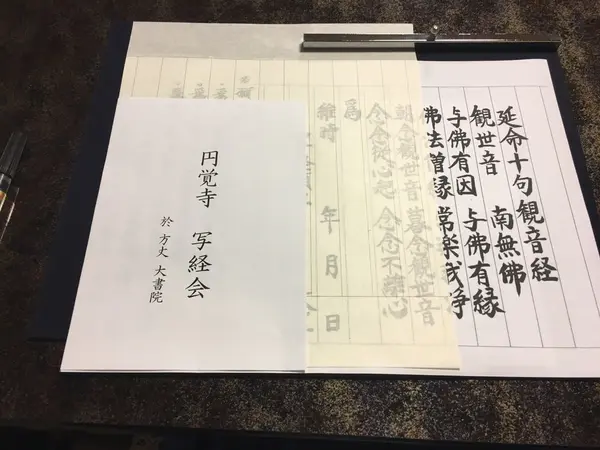 延命十句観音経
観世音 南無佛
与佛有因 与佛有縁
佛法僧縁 常楽我浄
朝念観世音 暮念観世音
念念従心起 念念不離心
為
維時 年 月 日
円覚寺 写経会
於 方丈 大書院